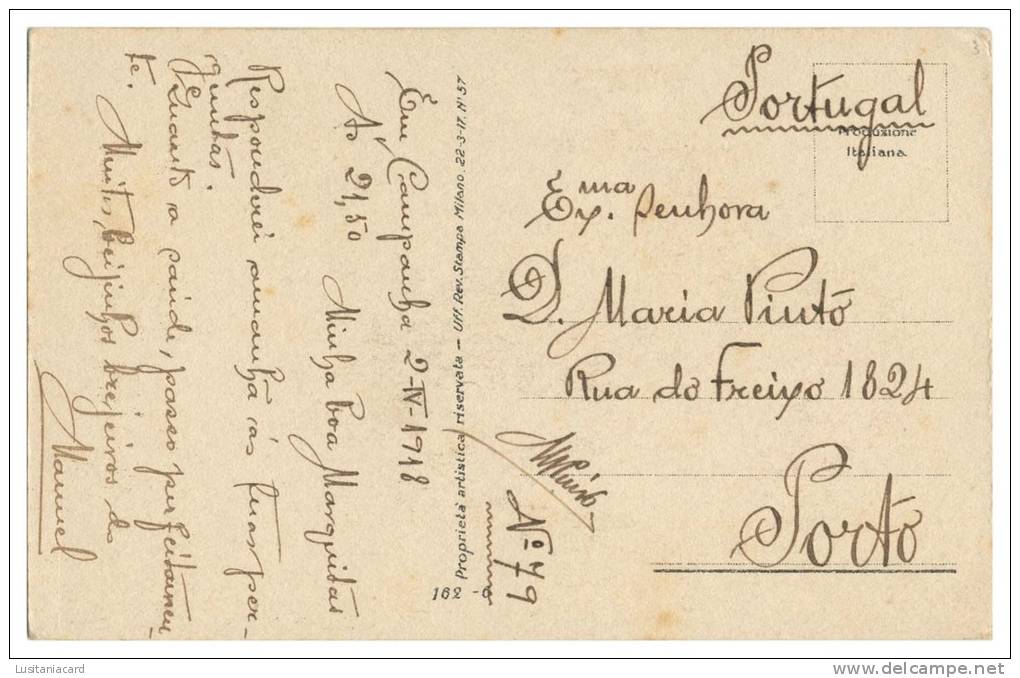 Em Campanha 2-IV-1918
Às 21,50 Minha boa Marquitas
Responderei amanhã às tuas per-
guntas.
Quanto a saúde, passo perfeitamen-
te.
Muitos beijinhos brejeiros do
Manuel
Proprietà artistica riservata - Uff. Rev. Stampa Milano. 22-3-17. N° 57
162 - 6
Portugal
Produzione
Italiana
Ex.ma Senhora
D. Maria Pinto
Rua do Freixo 1824
Porto
MPinto
Nº 79
Lusitaniacard
www.delcampe.net